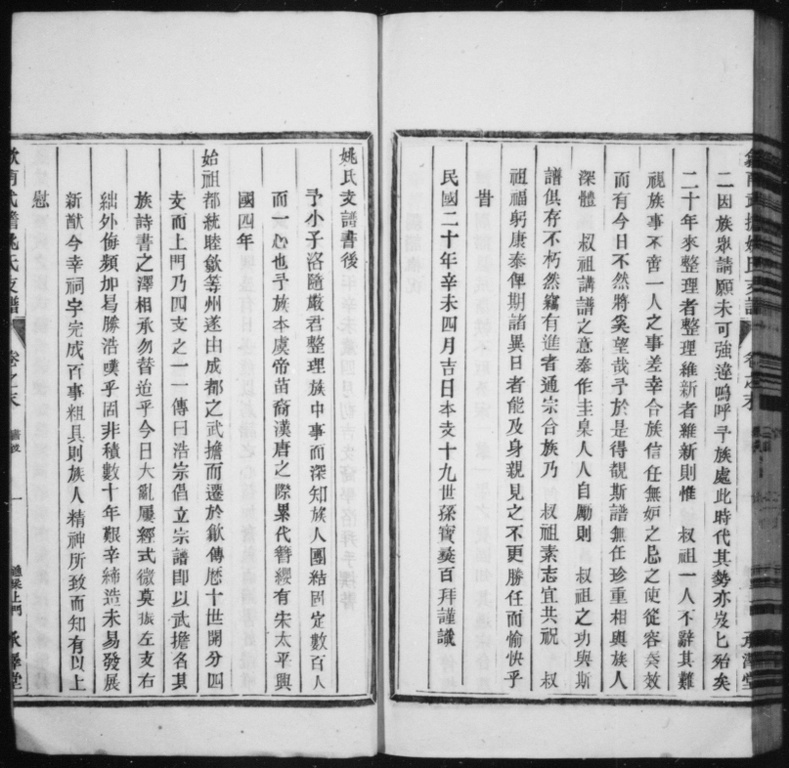 二因族眾請願未可強違嗚呼予族處此時代其勢亦岌匕殆矣
二十年來整理者整理維新者維新則惟　叔祖一人不辭其難
視族事不啻一人之事差幸合族信任無妒之忌之使從容奏效
而有今日不然將奚望哉予於是得覩斯譜無任珍重相與族人
深體　叔祖講譜之意奉作圭臬人人自勵則　叔祖之功與斯
譜俱存不朽然竊有進者通宗合族乃　叔祖素志宜共祝　叔
祖福躬康泰俾期諸異日者能及身親見之不更勝任而愉快乎
旹
民國二十年辛未四月吉日本支十九世孫寶奏百拜謹識
姚氏支譜書後
予小子洛隨嚴君整理族中事而深知族人團結固定數百人
而一心也予族本虞帝苗裔漢唐之際累代簪纓有宋太平興
國四年
始祖都統睦歙等州遂由成都之武擔而遷於歙傳歷十世開分四
支而上門乃四支之一傳曰浩宗倡立宗譜卽以武擔名其
族詩書之澤相承勿替迨乎今日大亂屢經式微莫振左支右
絀外侮頻加曷勝浩嘆乎固非積數十年艱辛締造未易發展
新猷今幸祠宇完成百事粗具則族人精神所致而知有以上
慰
姚氏支譜　卷之末
一
承澤堂